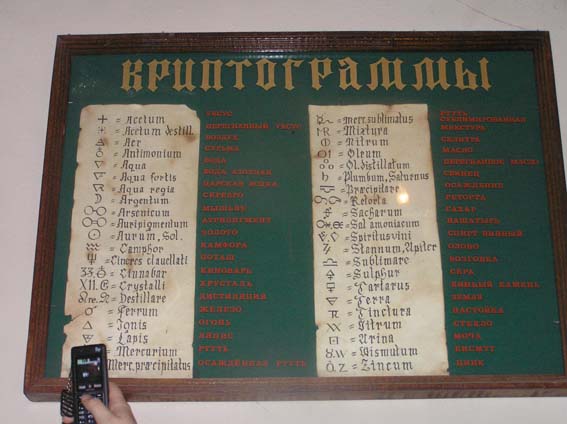 КРИПТОГРАММЫ
= Acetum УКСУС
= Acetum destill. ПЕРЕГНАННЫЙ УКСУС
= Aer ВОЗДУХ
= Antimonium СУРЬМА
= Aqua ВОДА
= Aqua fortis ВОДА КРЕПКАЯ
= Aqua regia ЦАРСКАЯ ВОДКА
= Argentum СЕРЕБРО
= Arsenicum МЫШЬЯК
= Auripigmentum АУРИПИГМЕНТ
= Aurum, Sol. ЗОЛОТО
= Camphor КАМФОРА
= Cineres clavellati ПОТАШ
= Cinnabar КИНОВАРЬ
= Crystalli ХРУСТАЛЬ
= Destillare ДИСТИЛЯЦИЯ
= Ferrum ЖЕЛЕЗО
= Ignis ОГОНЬ
= Lapis
= Mercurium РТУТЬ
Merc. præcipitatus ОСАЖДЁННАЯ РТУТЬ
= Merc. sublimatus РТУТЬ СУБЛИМИРОВАННАЯ
= Mixtura МИКСТУРА
= Nitrum СЕЛИТРА
= Oleum МАСЛО
= Ol. distillatum ПЕРЕГНАННОЕ МАСЛО
= Plumbum, Saturnus СВИНЕЦ
= Præcipitare ОСАЖДЕНИЕ
= Retorta РЕТОРТА
= Sacharum САХАР
= Sal amoniacum НАШАТЫРЬ
= Spiritus vini СПИРТ ВИННЫЙ
= Stannum, Upiter ОЛОВО
= Sublimare ВОЗГОНКА
= Sulphur СЕРА
= Tartarus ВИННЫЙ КАМЕНЬ
= Terra ЗЕМЛЯ
= Tinctura НАСТОЙКА
= Vitrum СТЕКЛО
= Urina МОЧА
= Wismutum ВИСМУТ
= Zincum ЦИНК